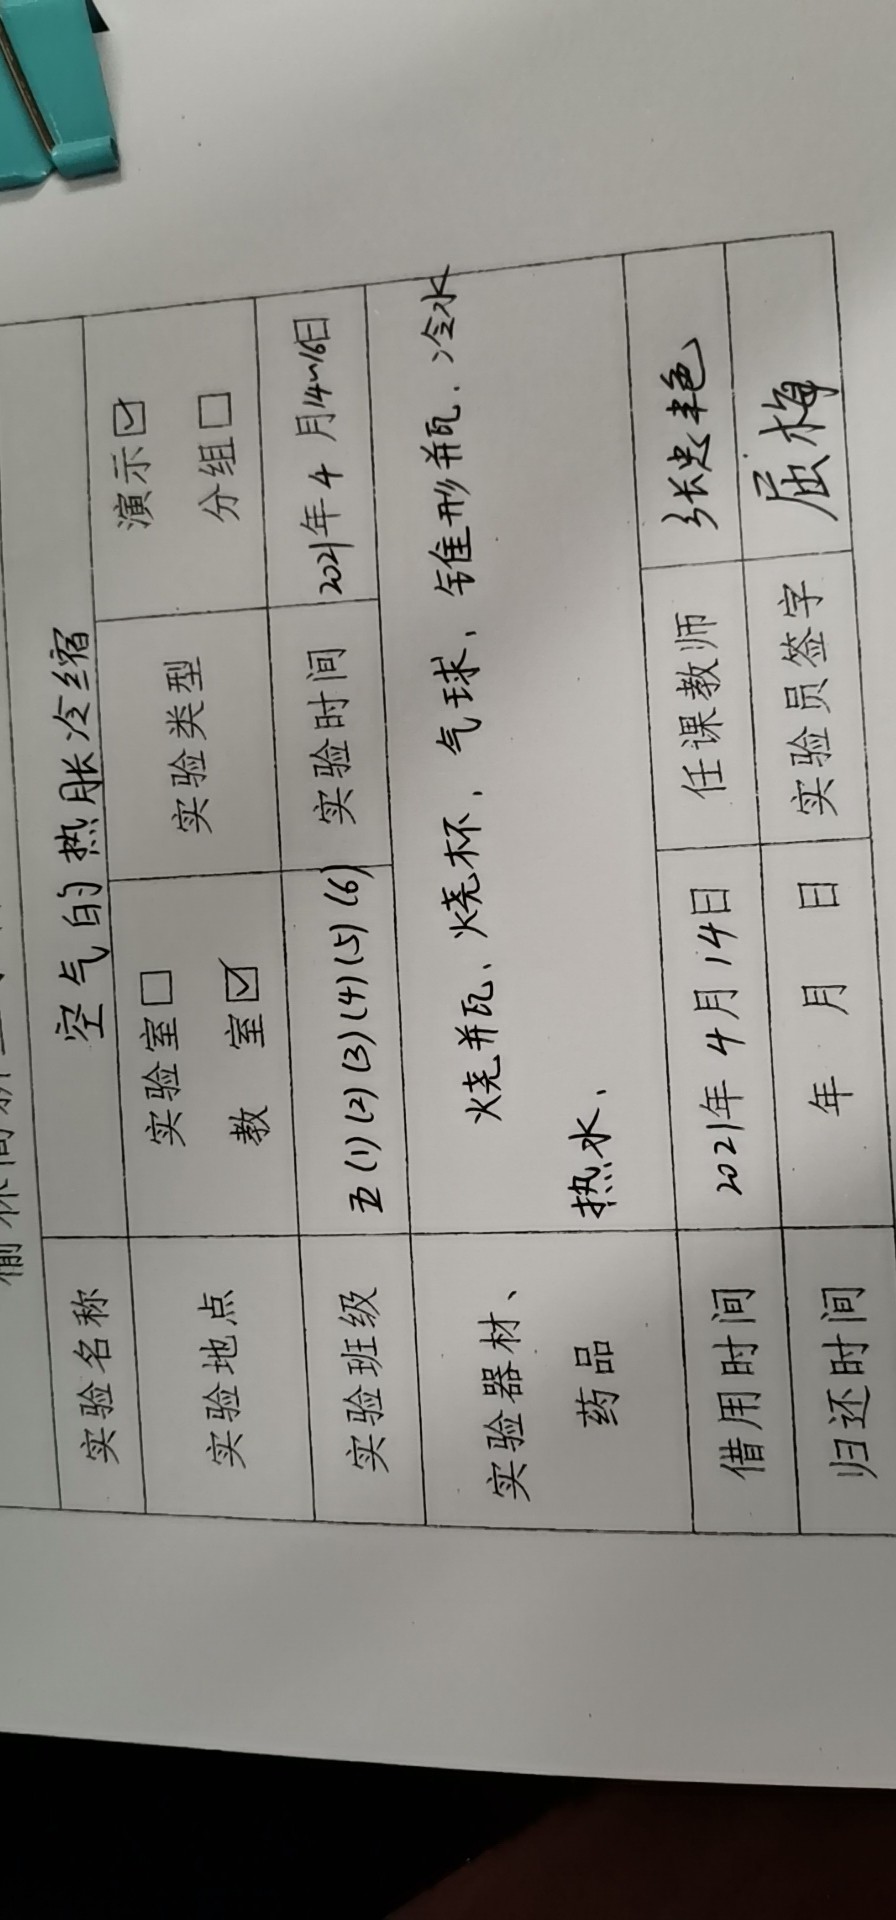 实验名称 空气的热胀冷缩
实验地点 实验室□ 教 室☑ 实验类型 演示☑ 分组□
实验班级 五(1)(2)(3)(4)(5)(6) 实验时间 2021年4月14~16日
实验器材、 烧并瓦、烧杯、气球、锥形并瓦、冷水
药品 热水、
借用时间 2021年4月14日 任课教师 张忠艳
归还时间 年 月 日 实验员签字 屈梅